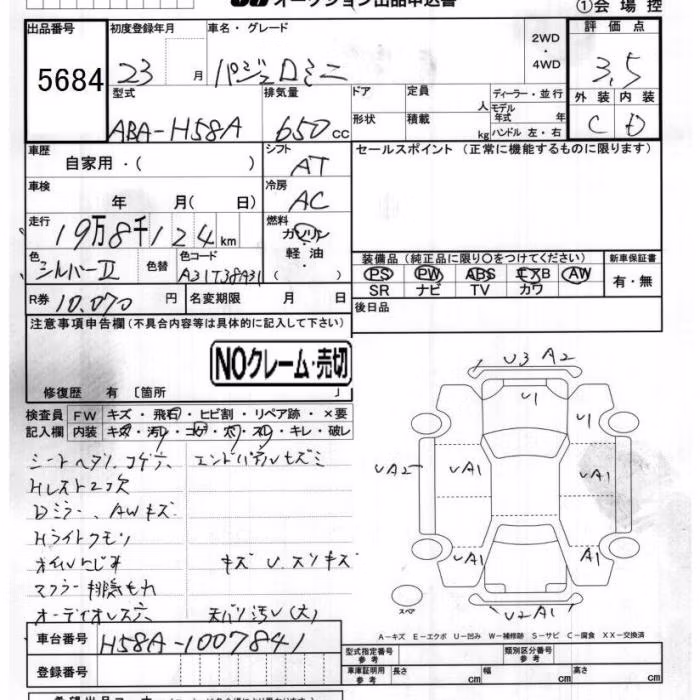 ①会場控
出品番号 初度登録年月 車名・グレード 2WD・4WD 評価点
5684 23 月 パジェロミニ 3.5
型式 排気量 ドア 定員 人 ディーラー・並行 外装 内装
ABA-H58A 650 cc 形状 積載 kg モデル年式 年 ハンドル 左・右 C D
車歴 自家用・( ) シフト AT セールスポイント (正常に機能するものに限ります)
車検 年 月( 日) 冷房 AC
走行 19万8千124 km 燃料 ガソリン 軽油
色 シルバーII 色替 色コード ( )
装備品 (純正品に限り○をつけてください) 新車保証書
PS PW ABS AW 有・無
SR ナビ TV カワ
R券 10,070 円 名変期限 月 日 後日品
注意事項申告欄 (不具合内容等は具体的に記入して下さい)
NOクレーム・売切
修復歴 有 〔箇所
検査員 FW キズ・飛石・ヒビ割・リペア跡・×要
記入欄 内装 キズ・汚レ・コゲ・穴・スレ・キレ・破レ
シートヘタリ、コゲ穴 エンドパネルキズミ
Hレスト2コ欠
Dミラー、AWキズ
Hライトクモリ
オイルにじみ キズ U、スリキズ
マフラー排気もれ
オーディオレス穴 天バリ汚レ(大)
U3 A2
U1 U1
UA2 UA1 UA1
UA1 A1
スペア U2A1
A-キズ E-エクボ U-凹み W-補修跡 S-サビ C-腐食 XX-交換済
車台番号 H58A-1007841
型式指定番号 参考 類別区分番号 参考
登録番号 車庫証明用 参考 長さ cm 幅 cm 高さ cm